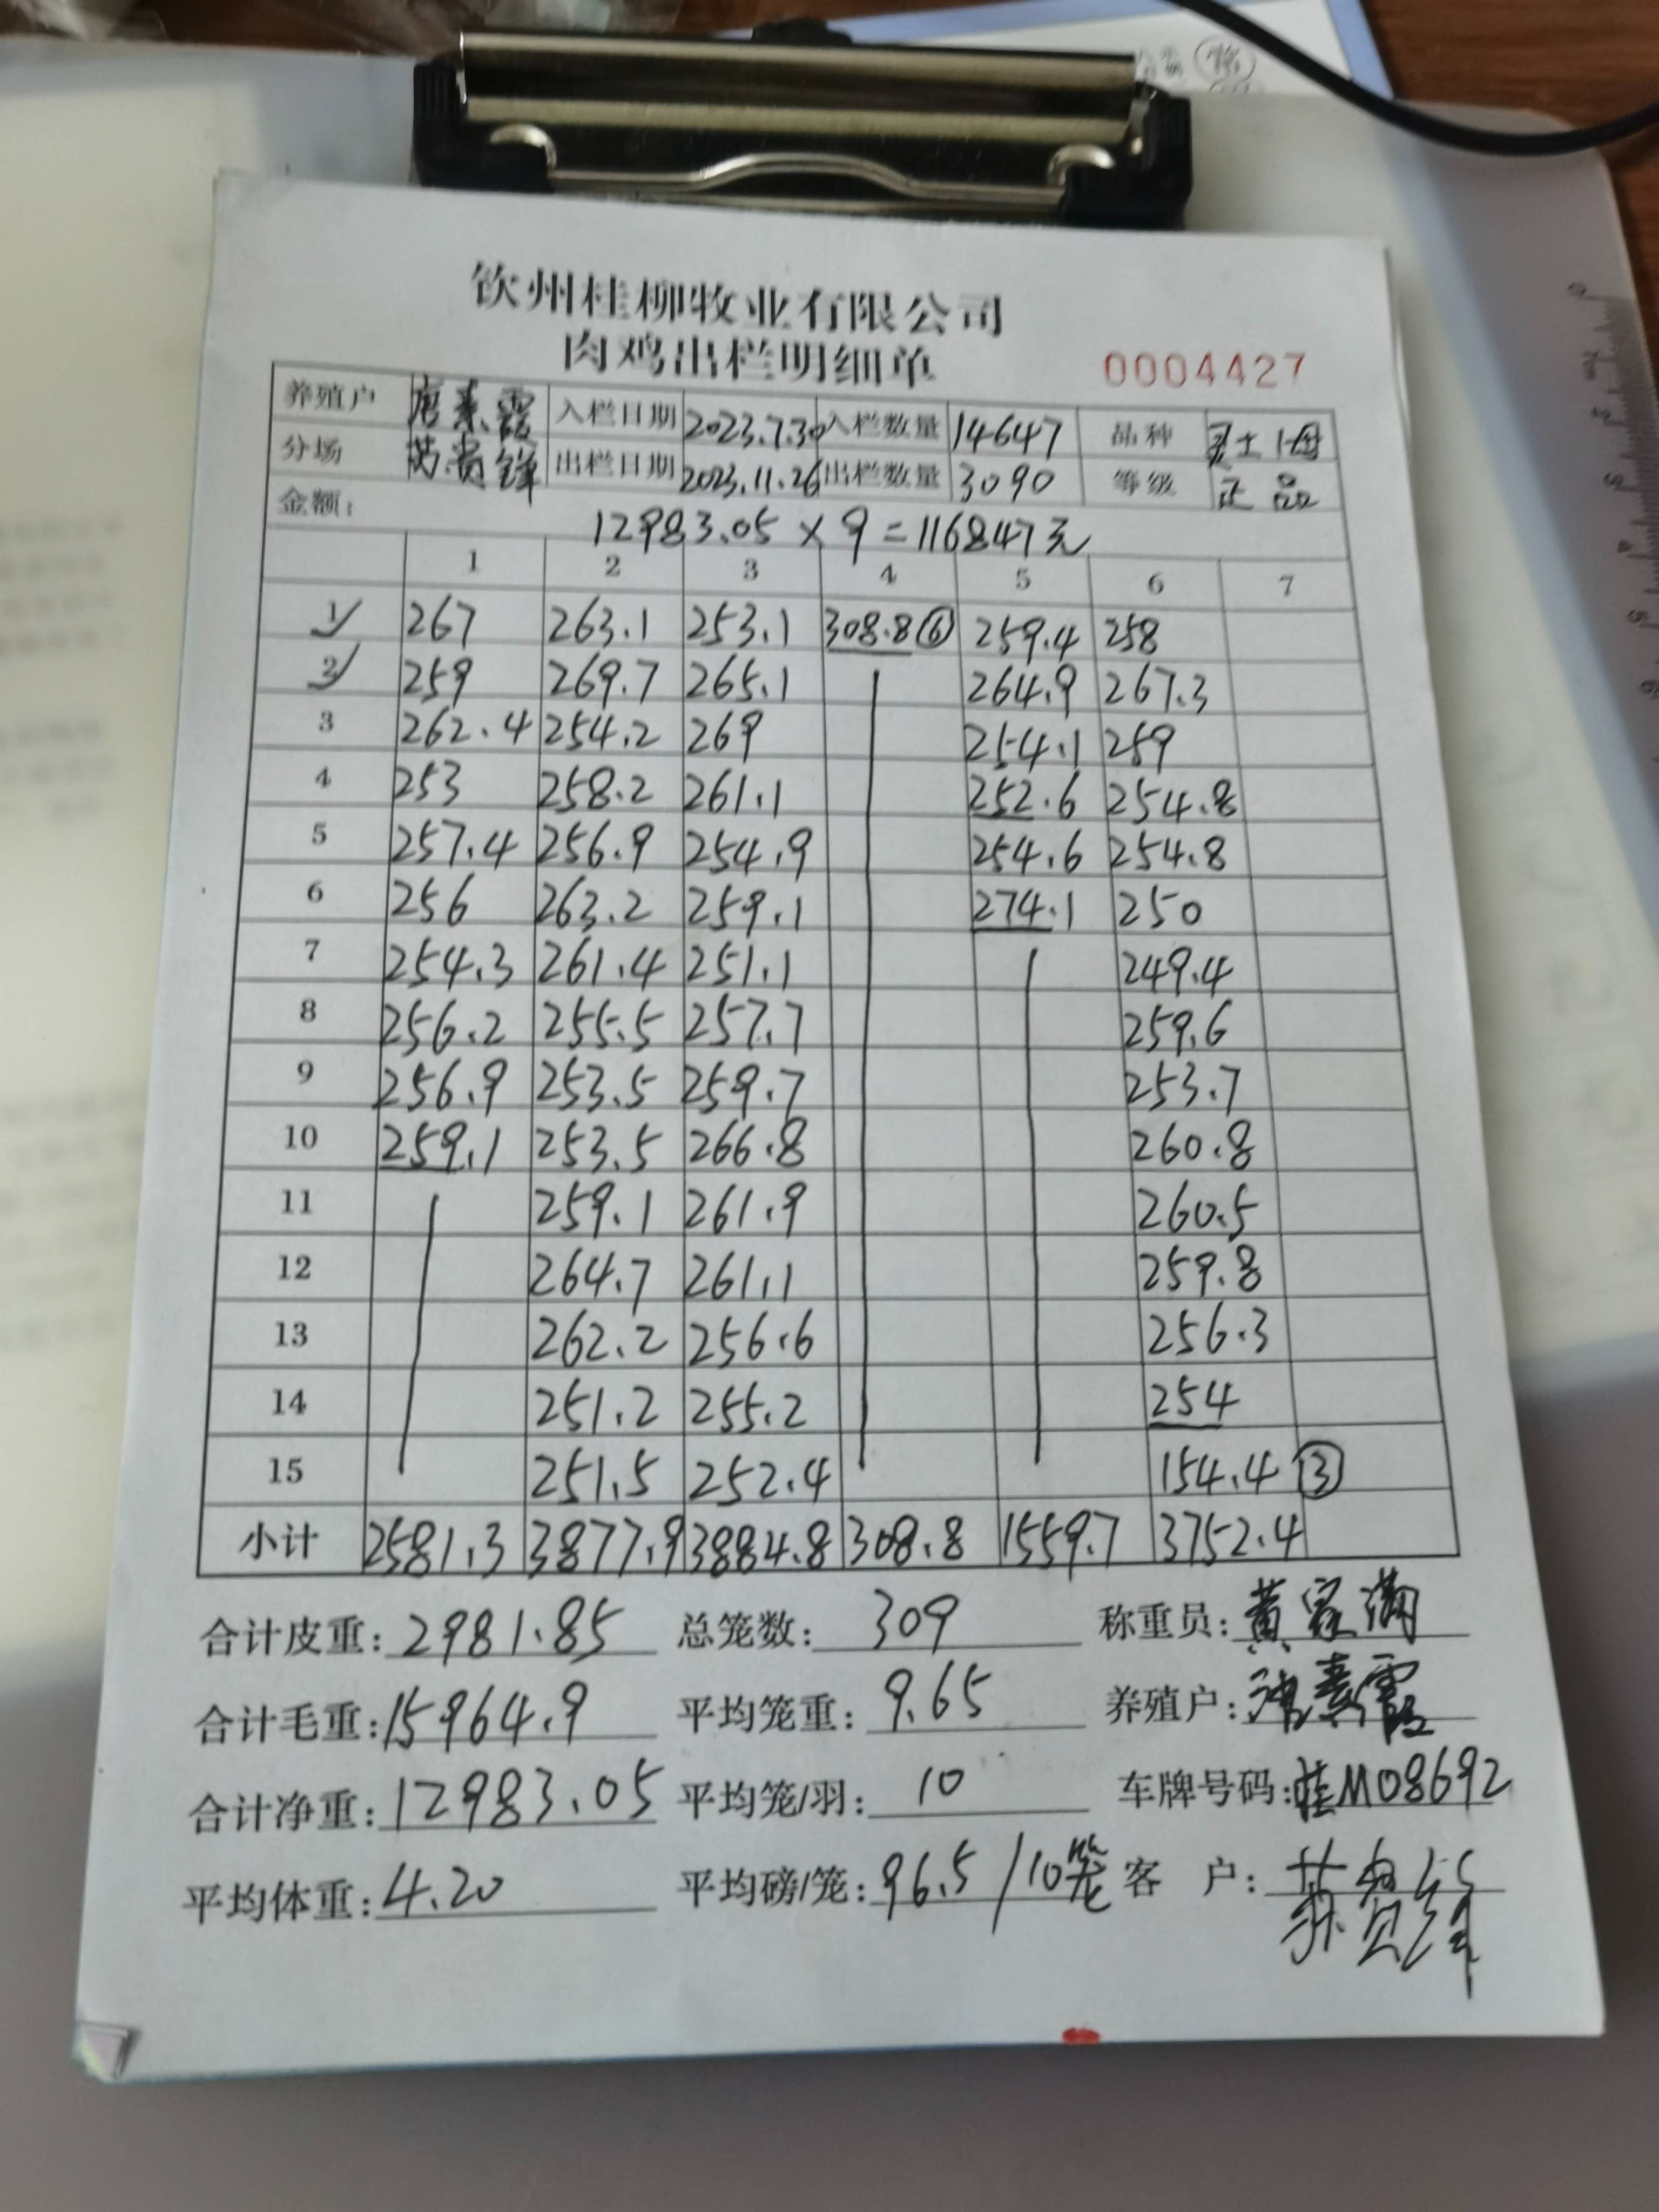 钦州桂柳牧业有限公司
肉鸡出栏明细单 0004427
养殖户 唐素霞 入栏日期 2023.7.30 入栏数量 14647 品种 土1母
分场 贵锋 出栏日期 2023.11.26 出栏数量 3090 等级 正品
金额: 12983.05×9=116847元
1 2 3 4 5 6 7
1 267 263.1 253.1 308.8⑥ 259.4 258
2 259 269.7 265.1 264.9 267.3
3 262.4 254.2 269 254.1 259
4 253 258.2 261.1 252.6 254.8
5 257.4 256.9 254.9 254.6 254.8
6 256 263.2 259.1 274.1 250
7 254.3 261.4 251.1 249.4
8 256.2 255.5 257.7 259.6
9 256.9 253.5 259.7 253.7
10 259.1 253.5 266.8 260.8
11 259.1 261.9 260.5
12 264.7 261.1 259.8
13 262.2 256.6 256.3
14 251.2 255.2 254
15 251.5 252.4 154.4 ③
小计 2581.3 3877.9 3884.8 308.8 1559.7 3752.4
合计皮重: 2981.85 总笼数: 309 称重员: 黄家满
合计毛重: 15964.9 平均笼重: 9.65 养殖户: 唐素霞
合计净重: 12983.05 平均笼/羽: 10 车牌号码: 桂M08692
平均体重: 4.20 平均磅/笼: 96.5/10笼 客户: